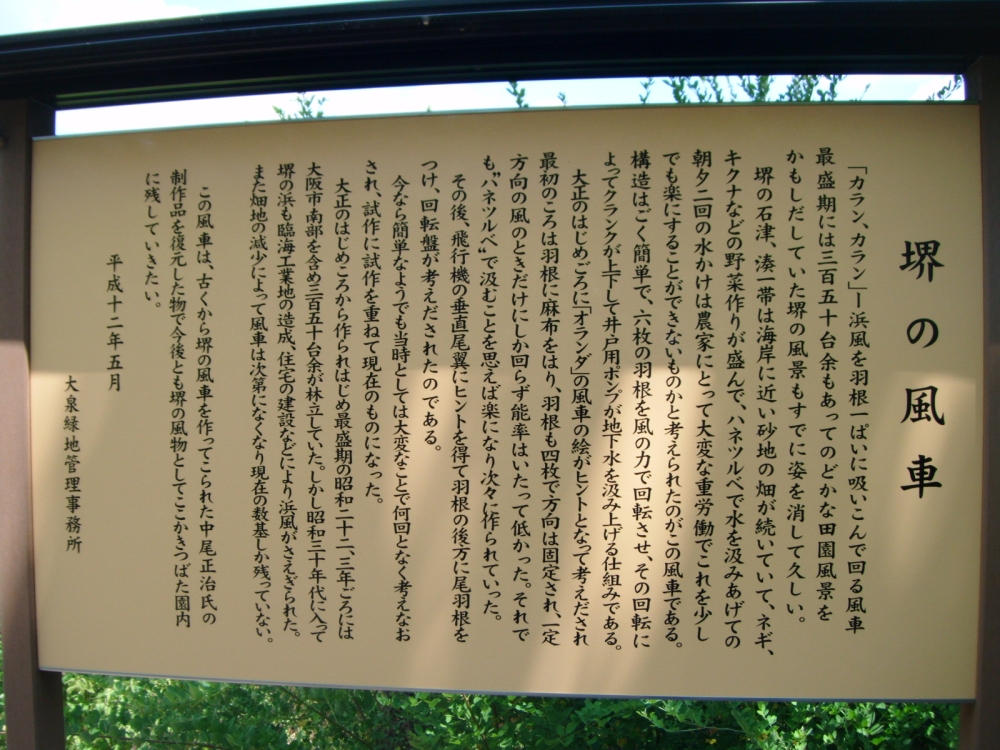 堺の風車
「カラン、カラン」ー浜風を羽根一ぱいに吸いこんで回る風車
最盛期には三百五十台余もあってのどかな田園風景を
かもしだしていた堺の風景もすでに姿を消して久しい。
堺の石津、湊一帯は海岸に近い砂地の畑が続いていて、ネギ、
キクナなどの野菜作りが盛んで、ハネツルベで水を汲みあげての
朝夕二回の水かけは農家にとって大変な重労働でこれを少し
でも楽にすることができないものかと考えられたのがこの風車である。
構造はごく簡単で、六枚の羽根を風の力で回転させ、その回転に
よってクランクが上下して井戸用ポンプが地下水を汲み上げる仕組みである。
大正のはじめごろに「オランダ」の風車の絵がヒントとなって考えだされ
最初のころは羽根に麻布をはり、羽根も四枚で方向は固定され、一定
方向の風のときだけにしか回らず能率はいたって低かった。それで
も〝ハネツルベ〟で汲むことを思えば楽になり次々に作られていった。
その後、飛行機の垂直尾翼にヒントを得て羽根の後方に尾羽根を
つけ、回転盤が考えだされたのである。
今なら簡単なようでも当時としては大変なことで何回となく考えなお
され、試作に試作を重ねて現在のものになった。
大正のはじめころから作られはじめ最盛期の昭和二十二、三年ごろには
大阪市南部を含め三百五十台余が林立していた。しかし昭和三十年代に入って
堺の浜も臨海工業地の造成、住宅の建設などにより浜風がさえぎられた。
また畑地の減少によって風車は次第になくなり現在の数基しか残っていない。
この風車は、古くから堺の風車を作ってこられた中尾正治氏の
制作品を復元した物で今後とも堺の風物としてここかきつばた園内
に残していきたい。
平成十二年五月
大泉緑地管理事務所